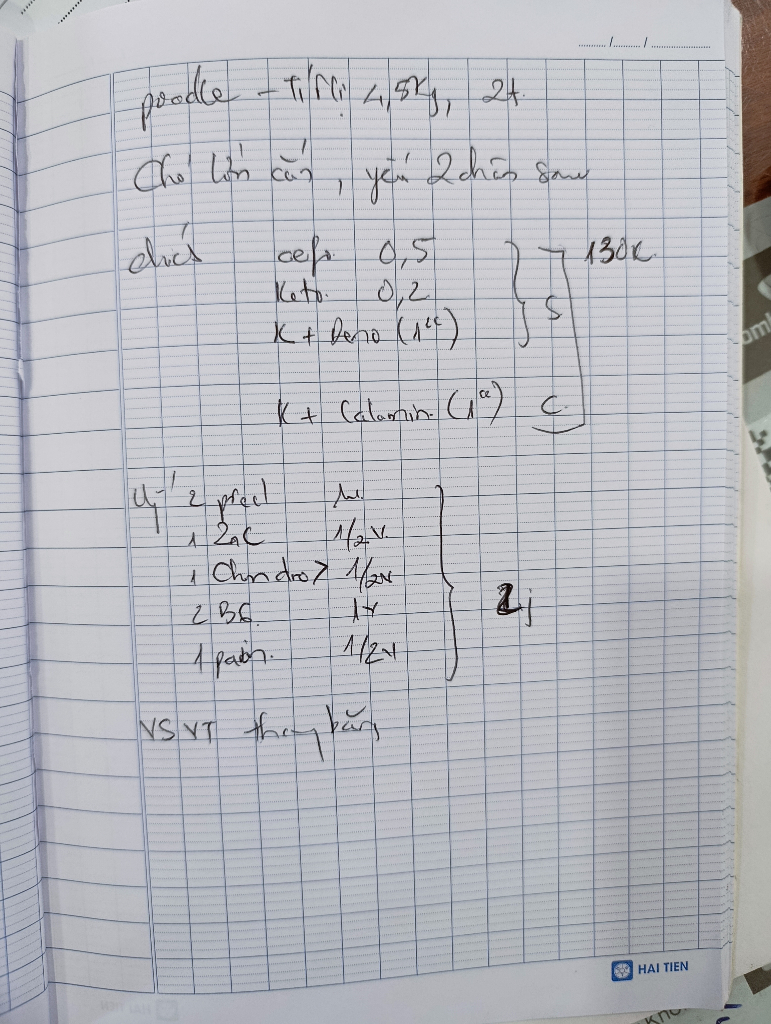 ....../....../............
poodle - Ti Ni 4,5Kg, 2t.
Chó lớn cắn, yếu 2 chân sau
chích cefo. 0,5 130K
Keto. 0,2
K + Deno (1cc) S
K + Calamin. (1cc) C
2 pred 1v
1 1/2v.
1 Chondro 1/2v
2 B6. 1v
1 1/2v
2j
VSVT thay băng
HAI TIEN